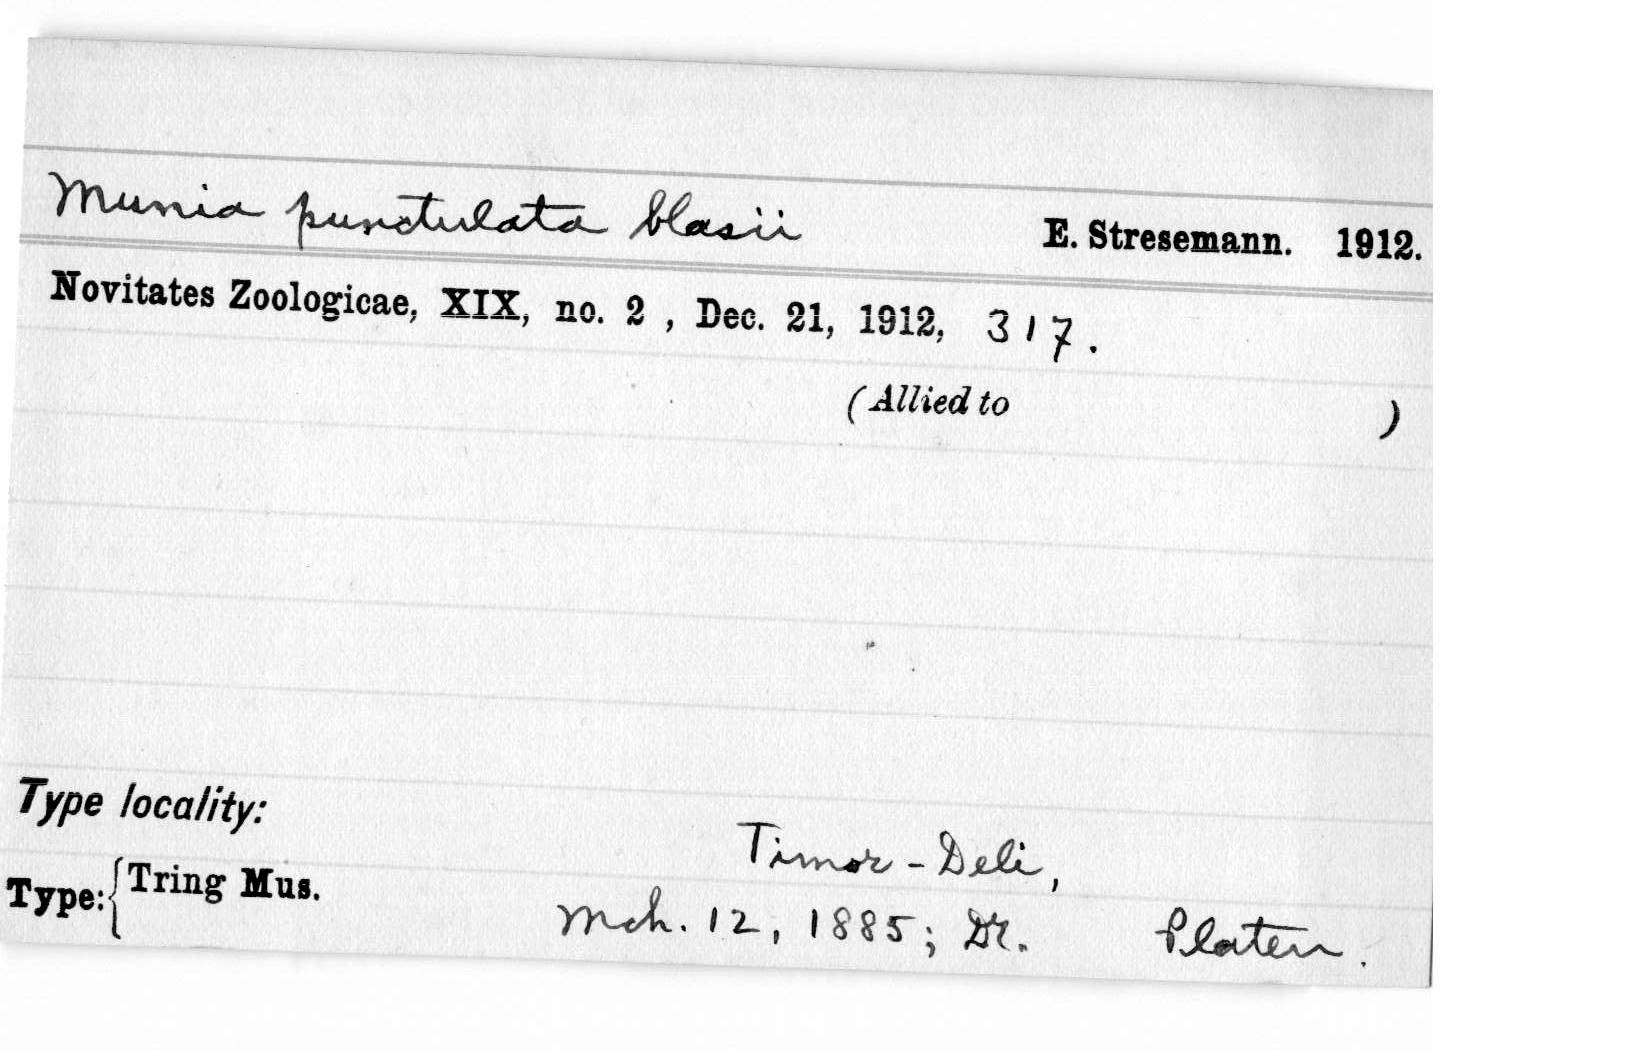 Munia punctulata blasii E. Stresemann. 1912.
Novitates Zoologicae, XIX, no. 2 , Dec. 21, 1912, 317.
(Allied to )
Type locality:
Timor-Deli,
Type: { Tring Mus.
Mch. 12, 1885; Dr. Platen.